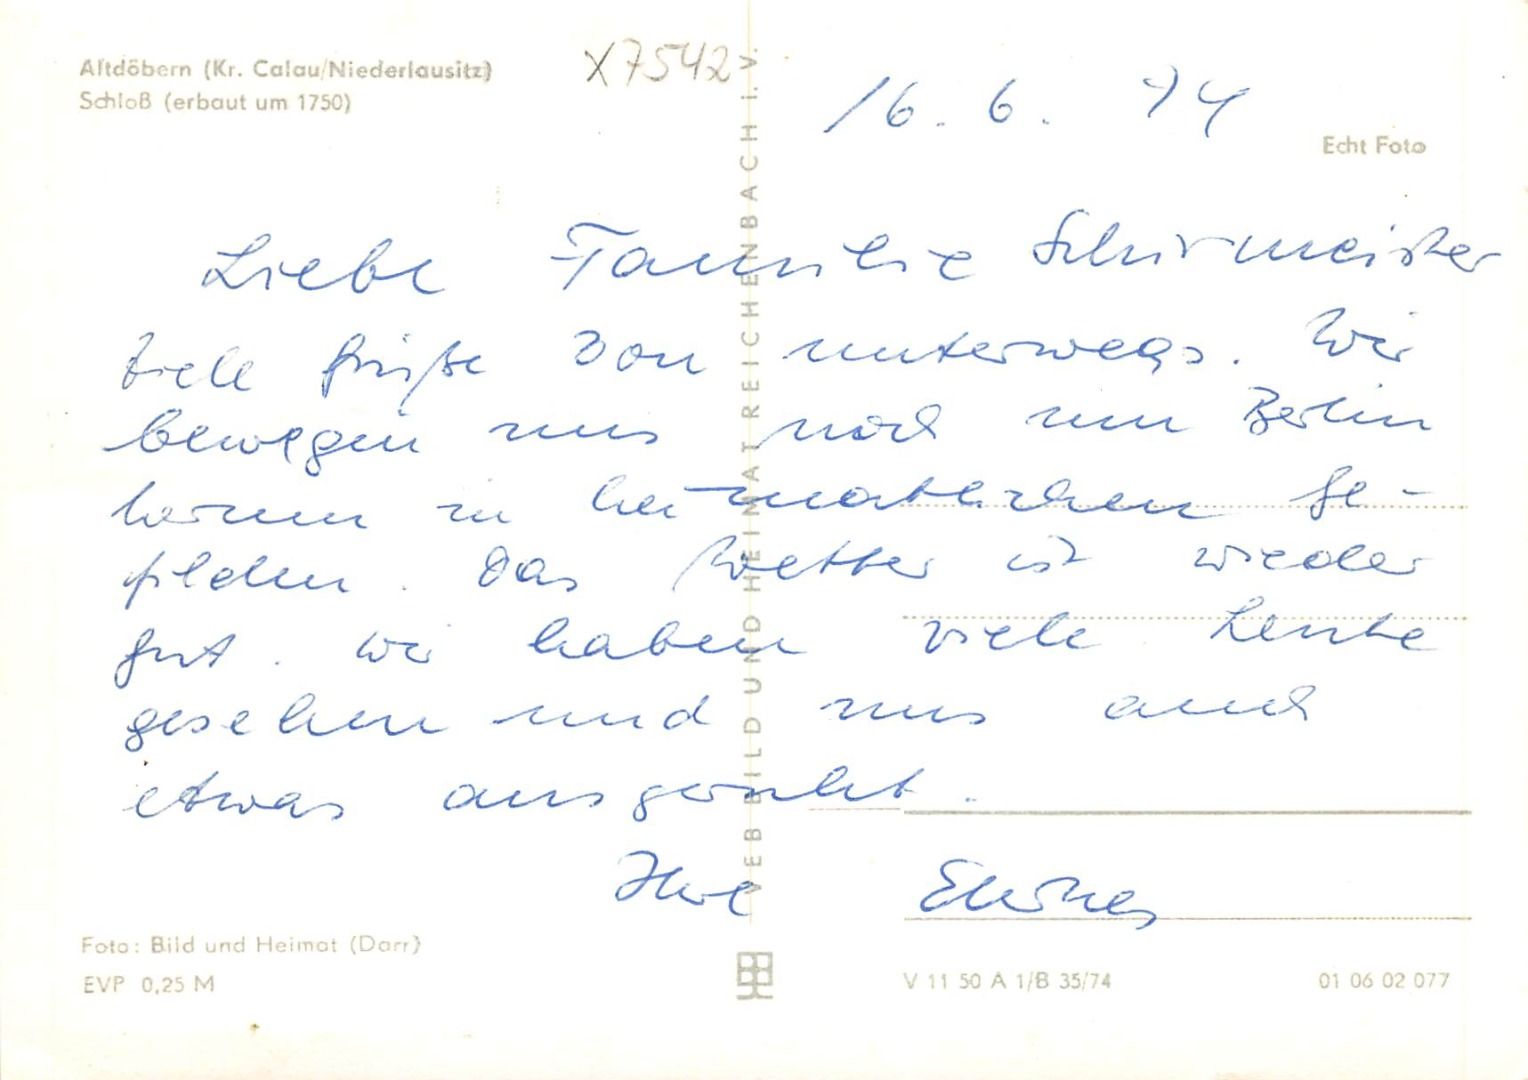 Altdöbern (Kr. Calau/Niederlausitz)
Schloß (erbaut um 1750)
X7542
16. 6. 74
Echt Foto
Liebe Familie Schirmeister
viele Grüße von unterwegs. Wir
bewegen uns noch um Berlin
herum in heimatlichen Ge-
filden. Das Wetter ist wieder
gut. Wir haben viele Leute
gesehen und uns auch
etwas ausgeruht.
Ihre
VEB BILD UND HEIMAT REICHENBACH I. V.
Foto: Bild und Heimat (Darr)
EVP 0,25 M
V 11 50 A 1/B 35/74
01 06 02 077